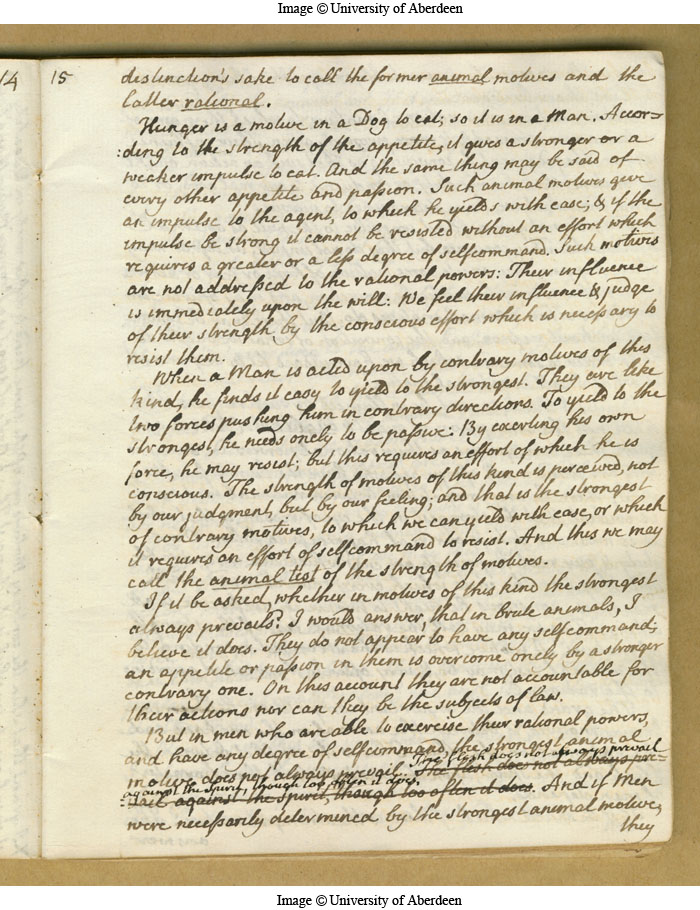 Image © University of Aberdeen
14 15
distinction's sake to call the former animal motives and the
latter rational.
Hunger is a motive in a Dog to eat; so it is in a Man. Accor=
:ding to the strength of the appetite, it gives a stronger or a
weaker impulse to eat. And the same thing may be said of
every other appetite and passion. Such animal motives give
an impulse to the agent, to which he yields with ease; & if the
impulse be strong it cannot be resisted without an effort which
requires a greater or a less degree of selfcommand. Such motives
are not addressed to the rational powers: Their influence
is immediately upon the will: We feel their influence & judge
of their strength by the conscious effort which is necessary to
resist them.
When a Man is acted upon by contrary motives of this
kind, he finds it easy to yield to the strongest. They are like
two forces pushing him in contrary directions. To yield to the
strongest, he needs onely to be passive: By exerting his own
force, he may resist; but this requires an effort of which he is
conscious. The strength of motives of this kind is perceived, not
by our judgment, but by our feeling; and that is the strongest
of contrary motives, to which we can yield with ease, or which
it requires an effort of selfcommand to resist. And this we may
call the animal test of the strength of motives.
If it be asked, whether in motives of this kind the strongest
always prevails? I would answer, that in brute animals, I
believe it does. They do not appear to have any selfcommand;
an appetite or passion in them is overcome onely by a stronger
contrary one. On this account they are not accountable for
their actions nor can they be the subjects of law.
But in men who are able to exercise their rational powers,
and have any degree of selfcommand, the strongest animal
The flesh does not always prevail
motive does not always prevail. The flesh does not always pre=
against the spirit, though too often it does.
:vail against the spirit, though too often it does. And if Men
were necessarily determined by the strongest animal motive,
they
Image © University of Aberdeen